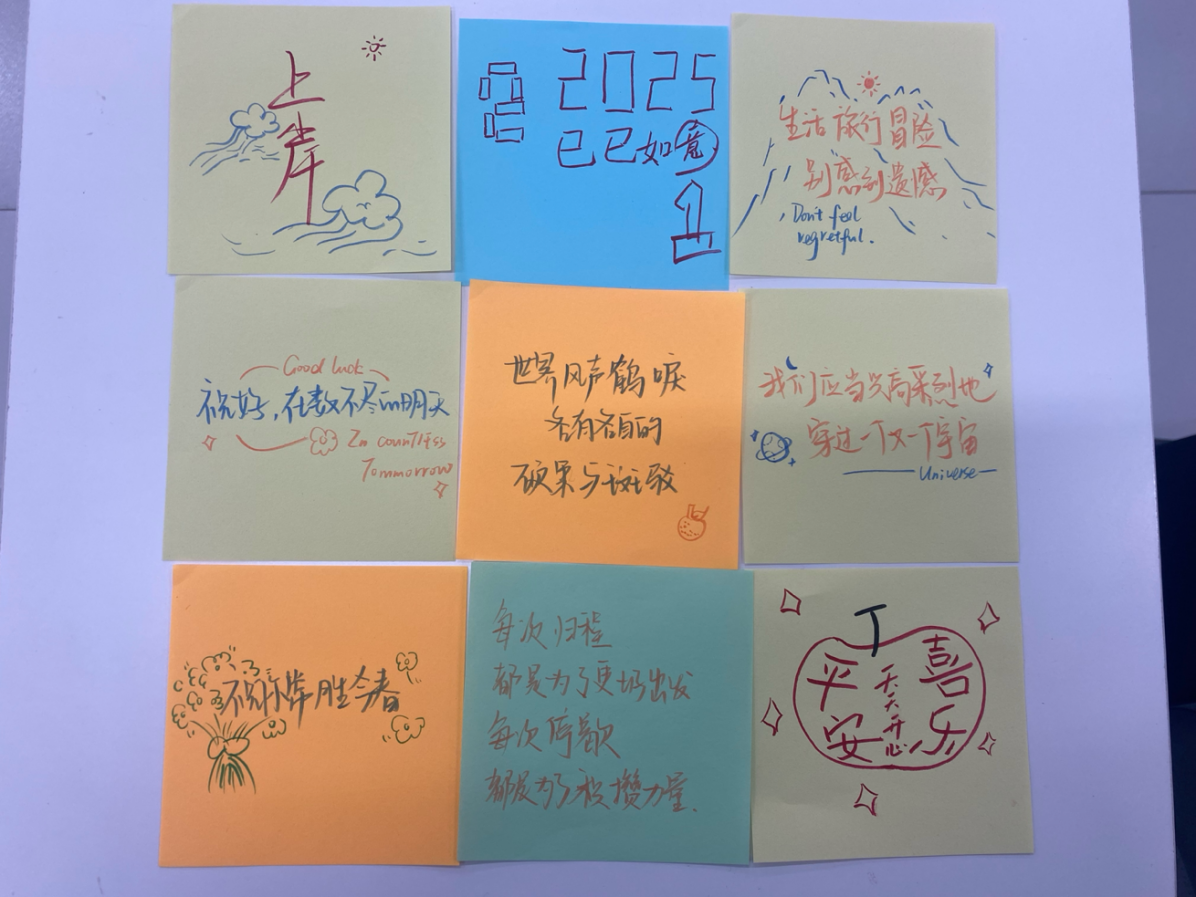 上岸
2025
已已如意
生活旅行冒险
别感到遗憾
Don't feel
regretful.
Good luck
祝好,在数不尽的明天
In countless
Tommorrow
世界风声鹤唳
各有各自的
硕果与斑驳
我们应当兴高采烈地
穿过一个又一个宇宙
Universe
祝你岁胜今春
每次归程
都是为了更好出发
每次停歇
都是为了积攒力量.
平安
天天开心
喜乐